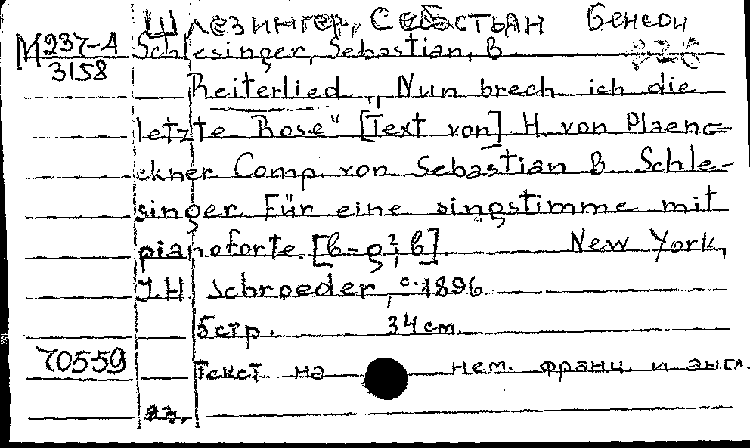 Шлезингер, Себастьян Бенсон
М 237-4 Schlesinger, Sebastian, B
3158
Reiterlied „Nun brech ich die
letzte Rose“ [Text von] H. von Plaen=
ckner Comp. von Sebastian B. Schle-
singer. Für eine singstimme mit
pianoforte. [b-g²; b]. New York,
J.H Schroeder, c. 1896
5 стр. 34 cm.
70559 Текст на нем. франц. и англ.
яз.